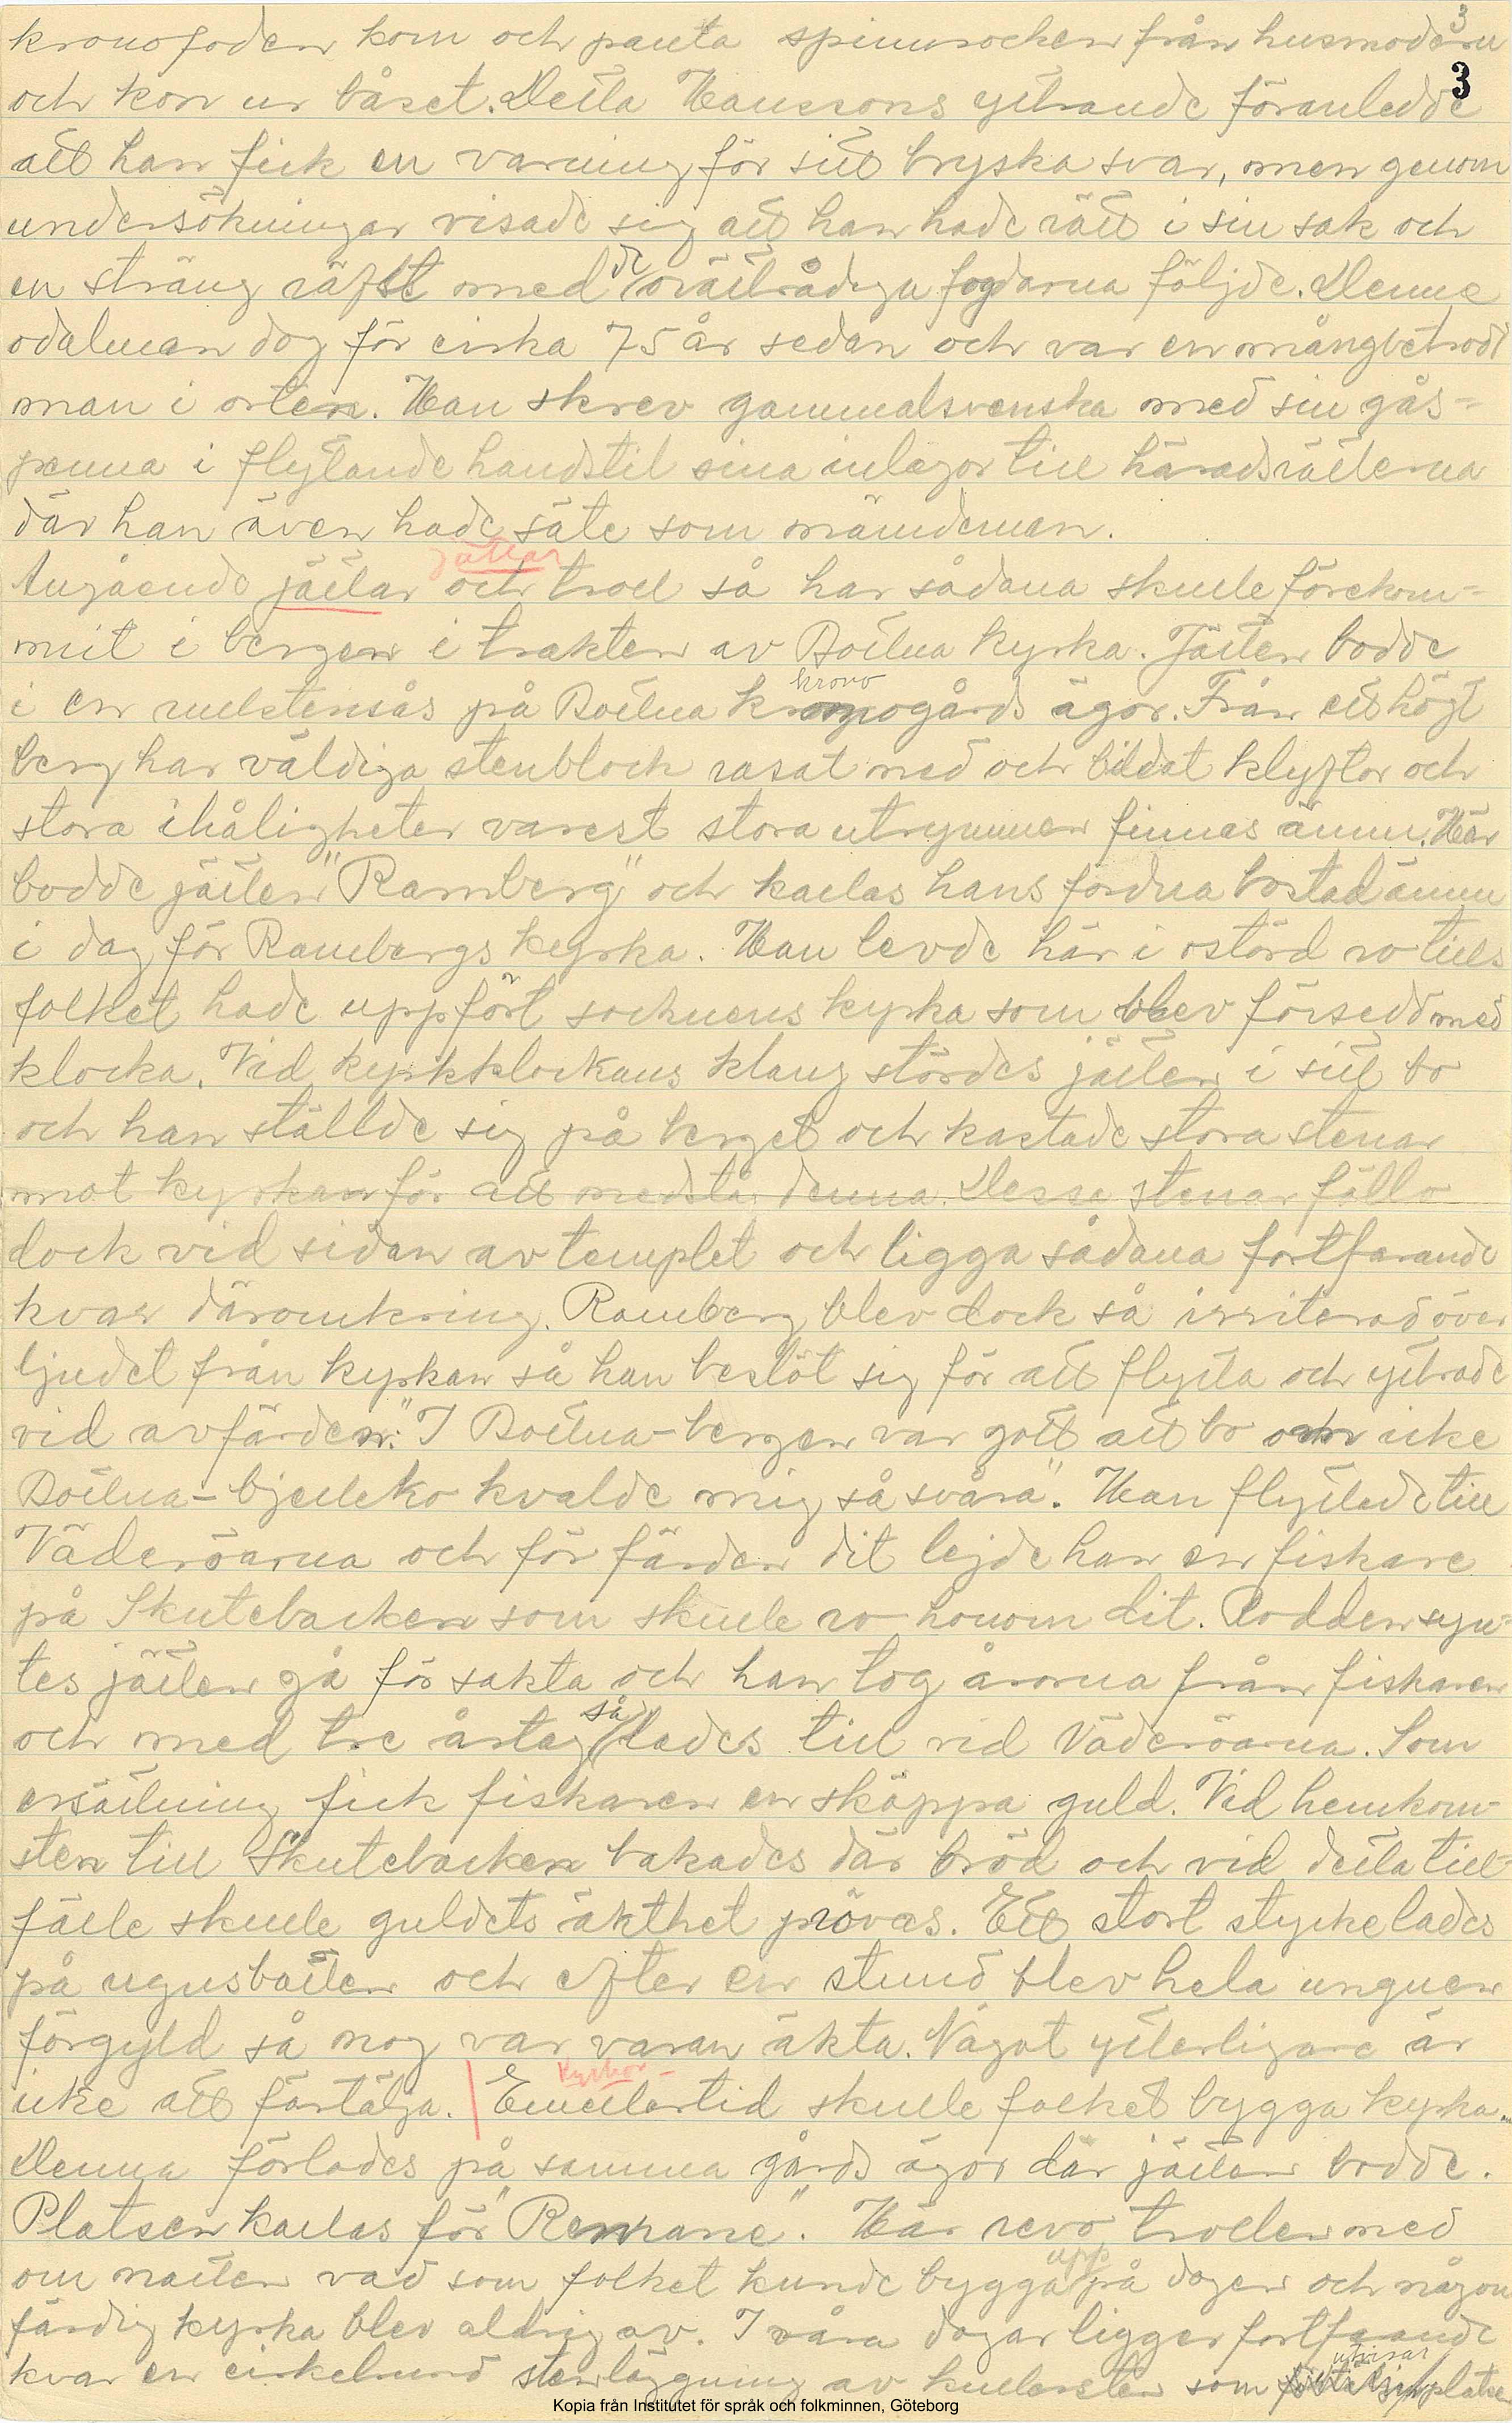 3
kronofoden kom och panta spinnrocken från husmodern
3
och kon ur båset. Detta Hanssons yttrande föranledde
att han fick en varning för sitt bryska svar, men genom
undersökningar visade sig att han hade rätt i sin sak och
en sträng räfst med de orättrådiga fogdarna följde. Denne
odalman dog för cirka 75 år sedan och var en mångbetrodd
man i orten. Han skrev gammalsvenska med sin gås-
penna i flytande handstil sina inlagor till häradsrätterna
där han även hade säte som nämndeman.
jättar
Angående jättar och troll så har sådana skulle förekom-
mit i bergen i trakten av Bottna kyrka. Jätten bodde
krono
i en rullstensås på Bottna gårds ägor. Från ett högt
berg har väldiga stenblock rasat ned och bildat klyftor och
stora ihåligheter varest stora utrymmen finnas ännu. Här
bodde jätten "Ramberg" och kallas hans fordna bostad ännu
i dag för Rambergs kyrka. Han levde här i ostörd ro tills
folket hade uppfört socknens kyrka som blev försedd med
klocka. Vid kyrkklockans klang stördes jätten i sitt bo
och han ställde sig på berget och kastade stora stenar
mot kyrkan för att nedslå denna. Dessa stenar föllo
dock vid sidan av templet och ligga sådana fortfarande
kvar däromkring. Ramberg blev dock så irriterad över
ljudet från kyrkan så han beslöt sig för att flytta och yttrade
vid avfärden: "I Bottna-bergen var gott att bo om icke
Bottna-bjelleko kvalde mig så svåra". Han flyttade till
Väderöarna och för färden dit lejde han en fiskare
på Skutebacken som skulle ro honom dit. Rodden syn-
tes jätten gå för sakta och han tog årorna från fiskaren
och med tre årtag så lades till vid Väderöarna. Som
ersättning fick fiskaren en skäppa guld. Vid hemkom-
sten till Skutebacken bakades där bröd och vid detta till-
fälle skulle guldets äkthet prövas. Ett stort stycke lades
på ugnsbotten och efter en stund blev hela ungnen
förgyld så nog var varan äkta. Något ytterligare är
Kyrkor-
icke att förtälja. Emellertid skulle folket bygga kyrka.
Denna förlades på samma gårds ägor där jätten bodde.
Platsen kallas för " ". Här revo trollen ned
om natten vad som folket kunde bygga upp på dagen och någon
färdig kyrka blev aldrig av. I våra dagar ligger fortfarande
kvar en cirkelrund stenläggning av kullersten som utvisar platsen
Kopia från Institutet för språk och folkminnen, Göteborg